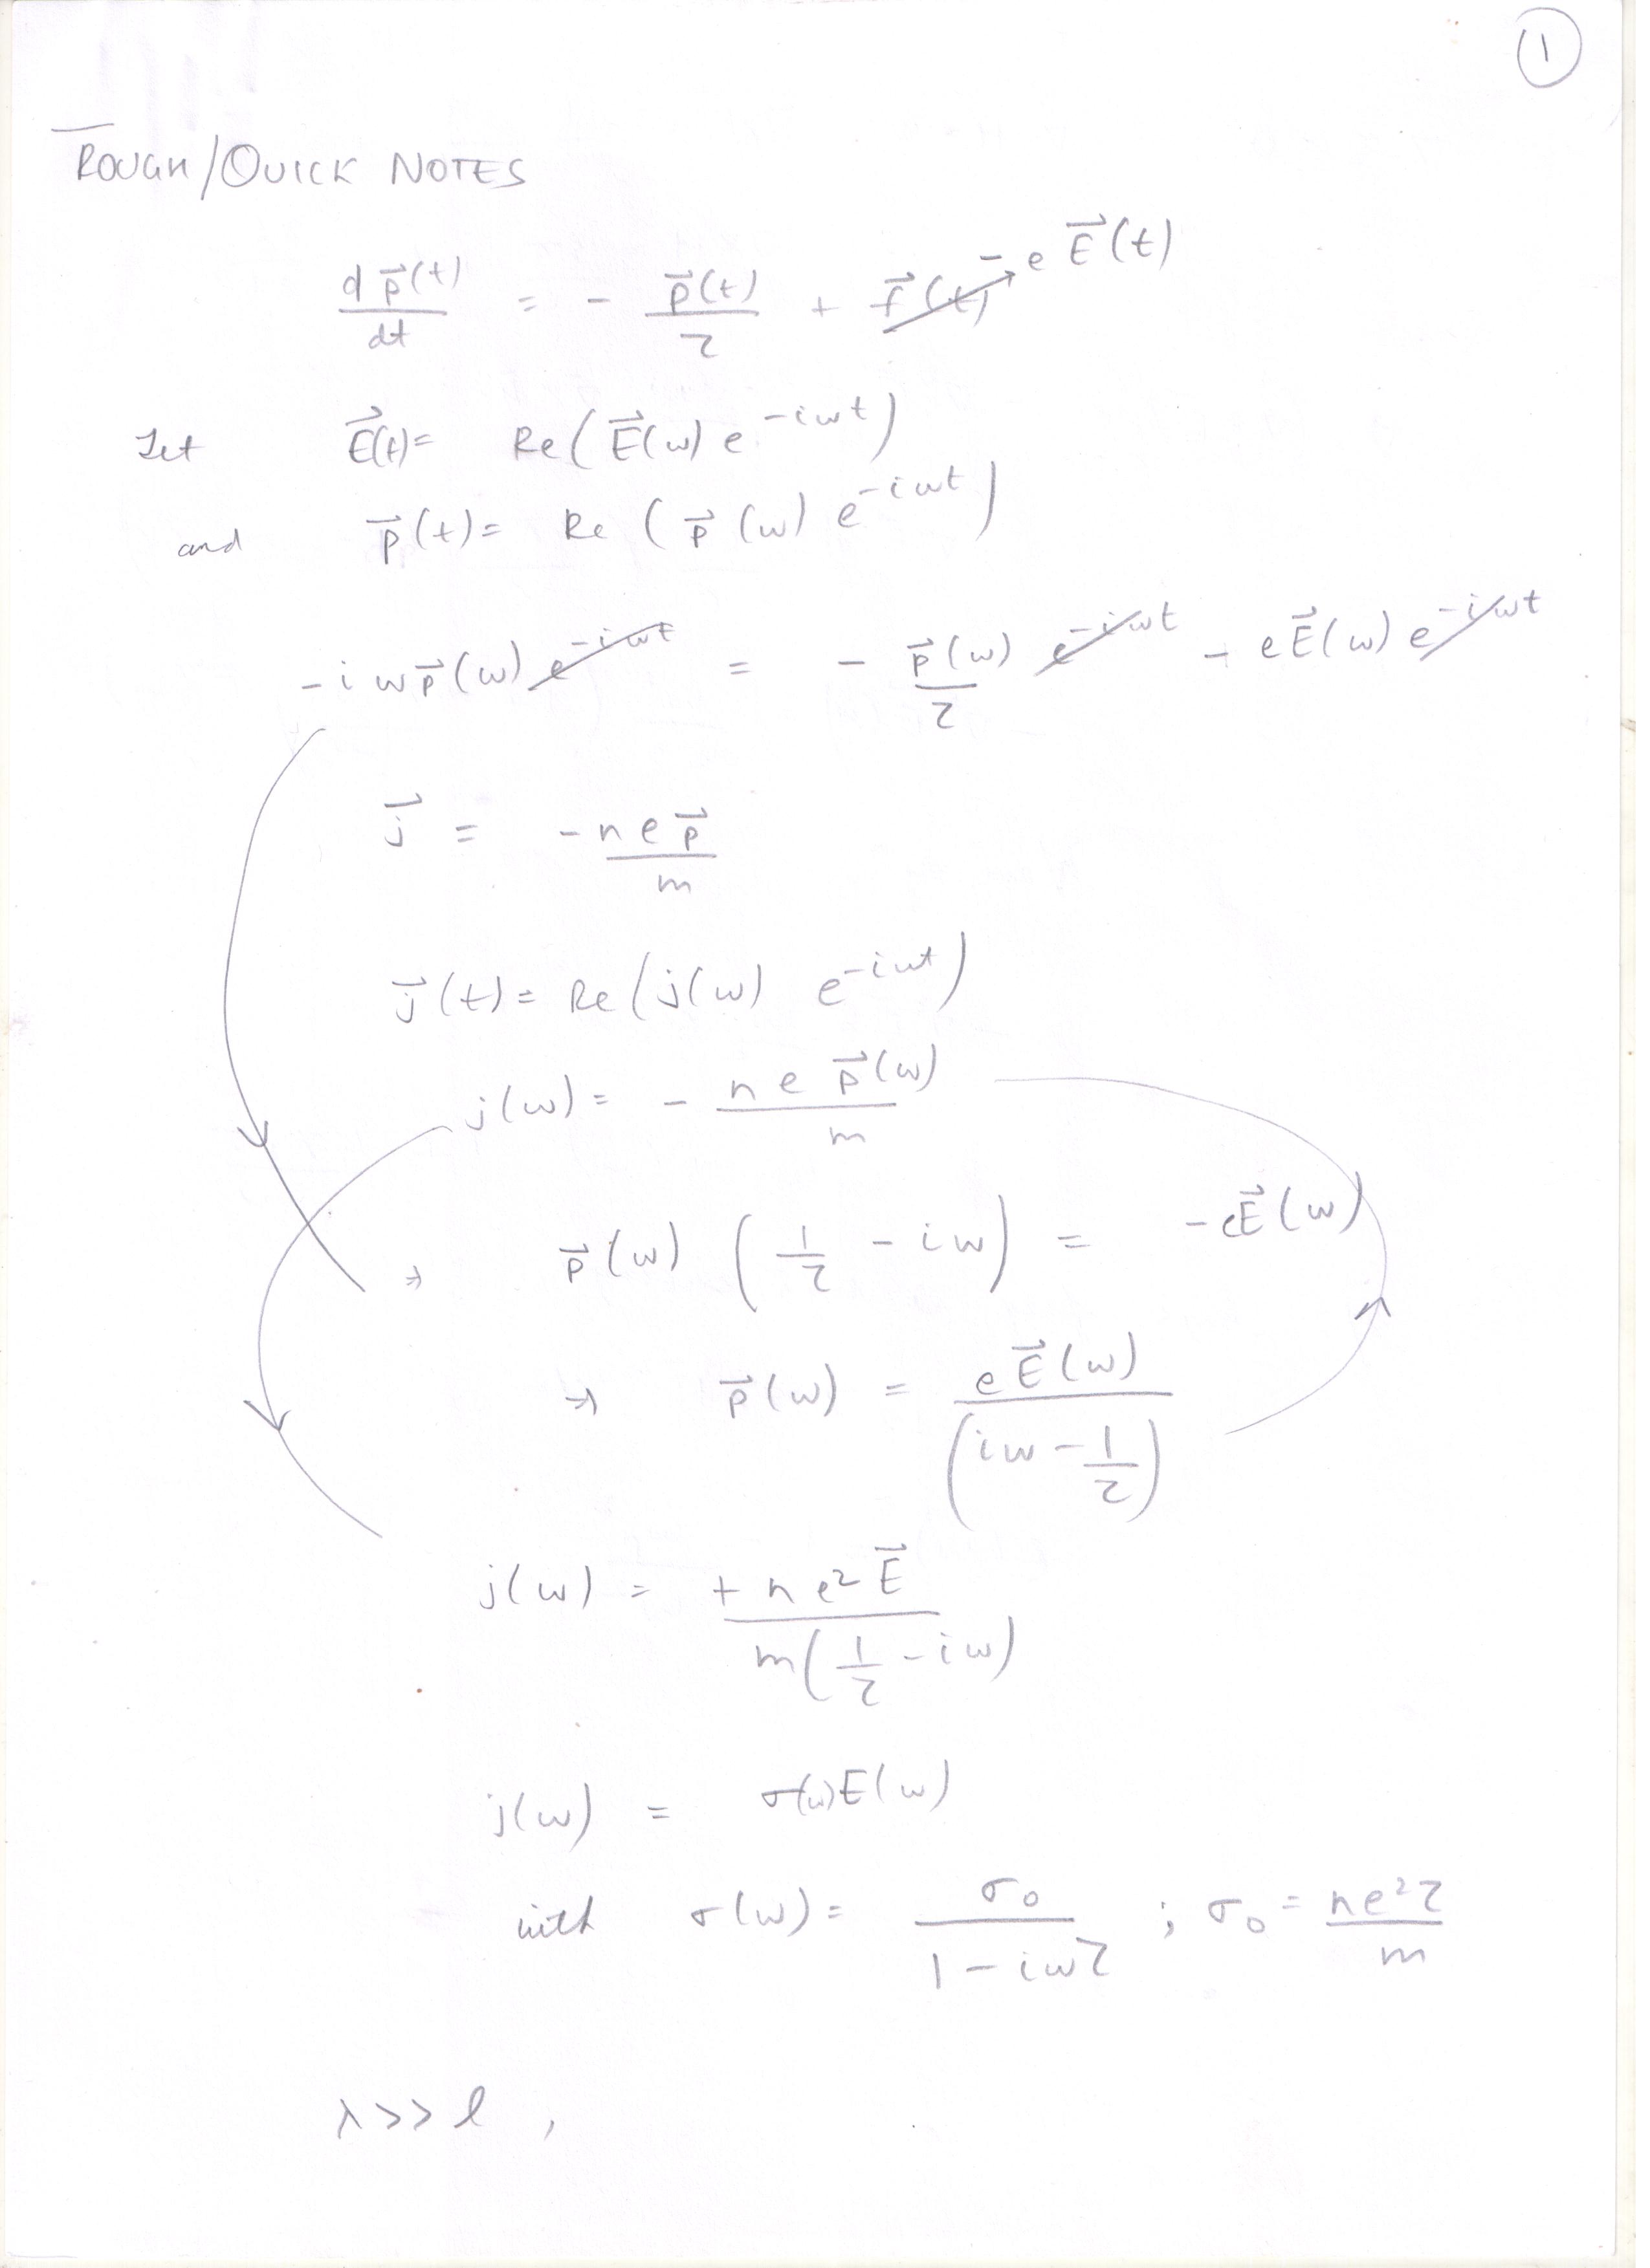 ①
ROUGH/QUICK NOTES
d p⃗(t)/dt = - p⃗(t)/τ + f⃗(t) → -e E⃗(t)
Let E⃗(t) = Re(E⃗(ω) e^{-iωt})
and p⃗(t) = Re (p⃗(ω) e^{-iωt})
-iωp⃗(ω) e^{-iωt} = - p⃗(ω)/τ e^{-iωt} - eE⃗(ω) e^{-iωt}
j⃗ = -nep⃗/m
j⃗(t) = Re(j(ω) e^{-iωt})
j(ω) = - ne p⃗(ω)/m
⇒ p⃗(ω) (1/τ - iω) = -eE⃗(ω)
⇒ p⃗(ω) = eE⃗(ω)/(iω - 1/τ)
j(ω) = + ne²E⃗/m(1/τ - iω)
j(ω) = σ(ω)E(ω)
with σ(ω) = σ₀/1-iωτ ; σ₀ = ne²τ/m
λ >> l ,